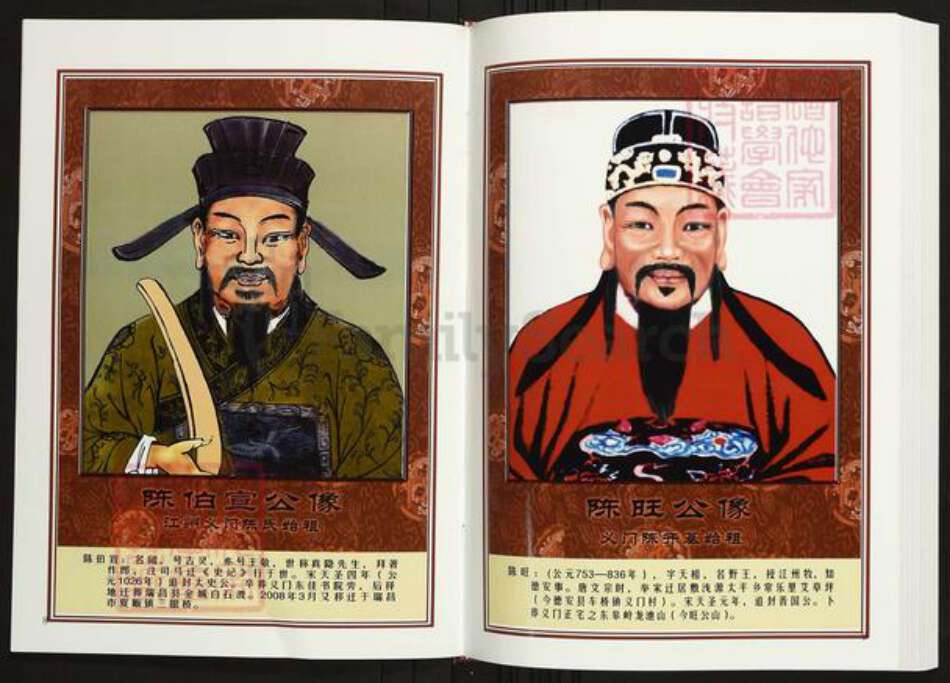 陈伯宣公像
江州义门陈氏始祖
陈伯宣：名阔，号古灵，亦号王敬，世称真隐先生，拜著
作郎，注司马迁《史记》行于世。宋天圣四年（公
元1026年）追封太史公。卒葬义门东佳书院旁，后择
地迁葬瑞昌县金城白石渡。2008年3月又移迁于瑞昌
市夏畈镇三眼桥。
陈旺公像
义门陈开基始祖
陈旺：（公元753—836年），字天相，名野王，授江州牧，知
德安事。唐文宗时，举家迁居敷浅源太平乡常乐里艾草坪
（今德安县车桥镇义门村）。宋天圣元年，追封晋国公。卜
葬义门正宅之东皋岭龙池山（今旺公山）。
FamilySearch